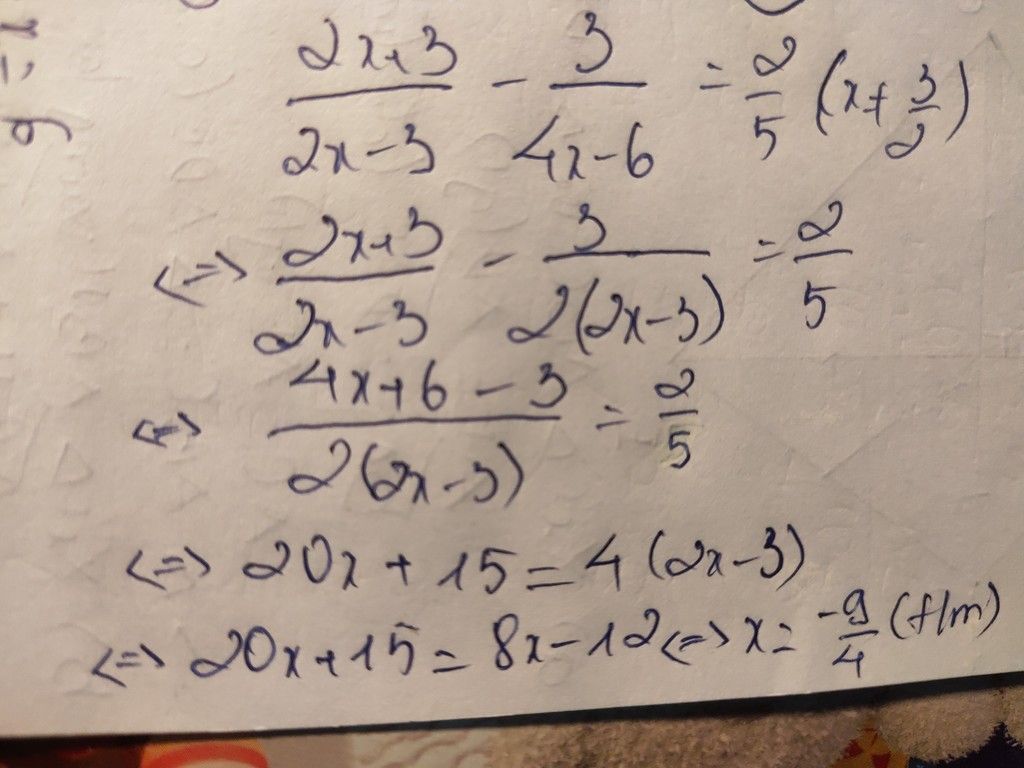 (2x+3)/(2x-3) - 3/(4x-6) = 2/5 (x+ 3/2)
<=> (2x+3)/(2x-3) - 3/(2(2x-3)) = 2/5
<=> (4x+6-3)/(2(2x-3)) = 2/5
<=> 20x + 15 = 4 (2x-3)
<=> 20x+15 = 8x-12 <=> x = -9/4 (t/m)